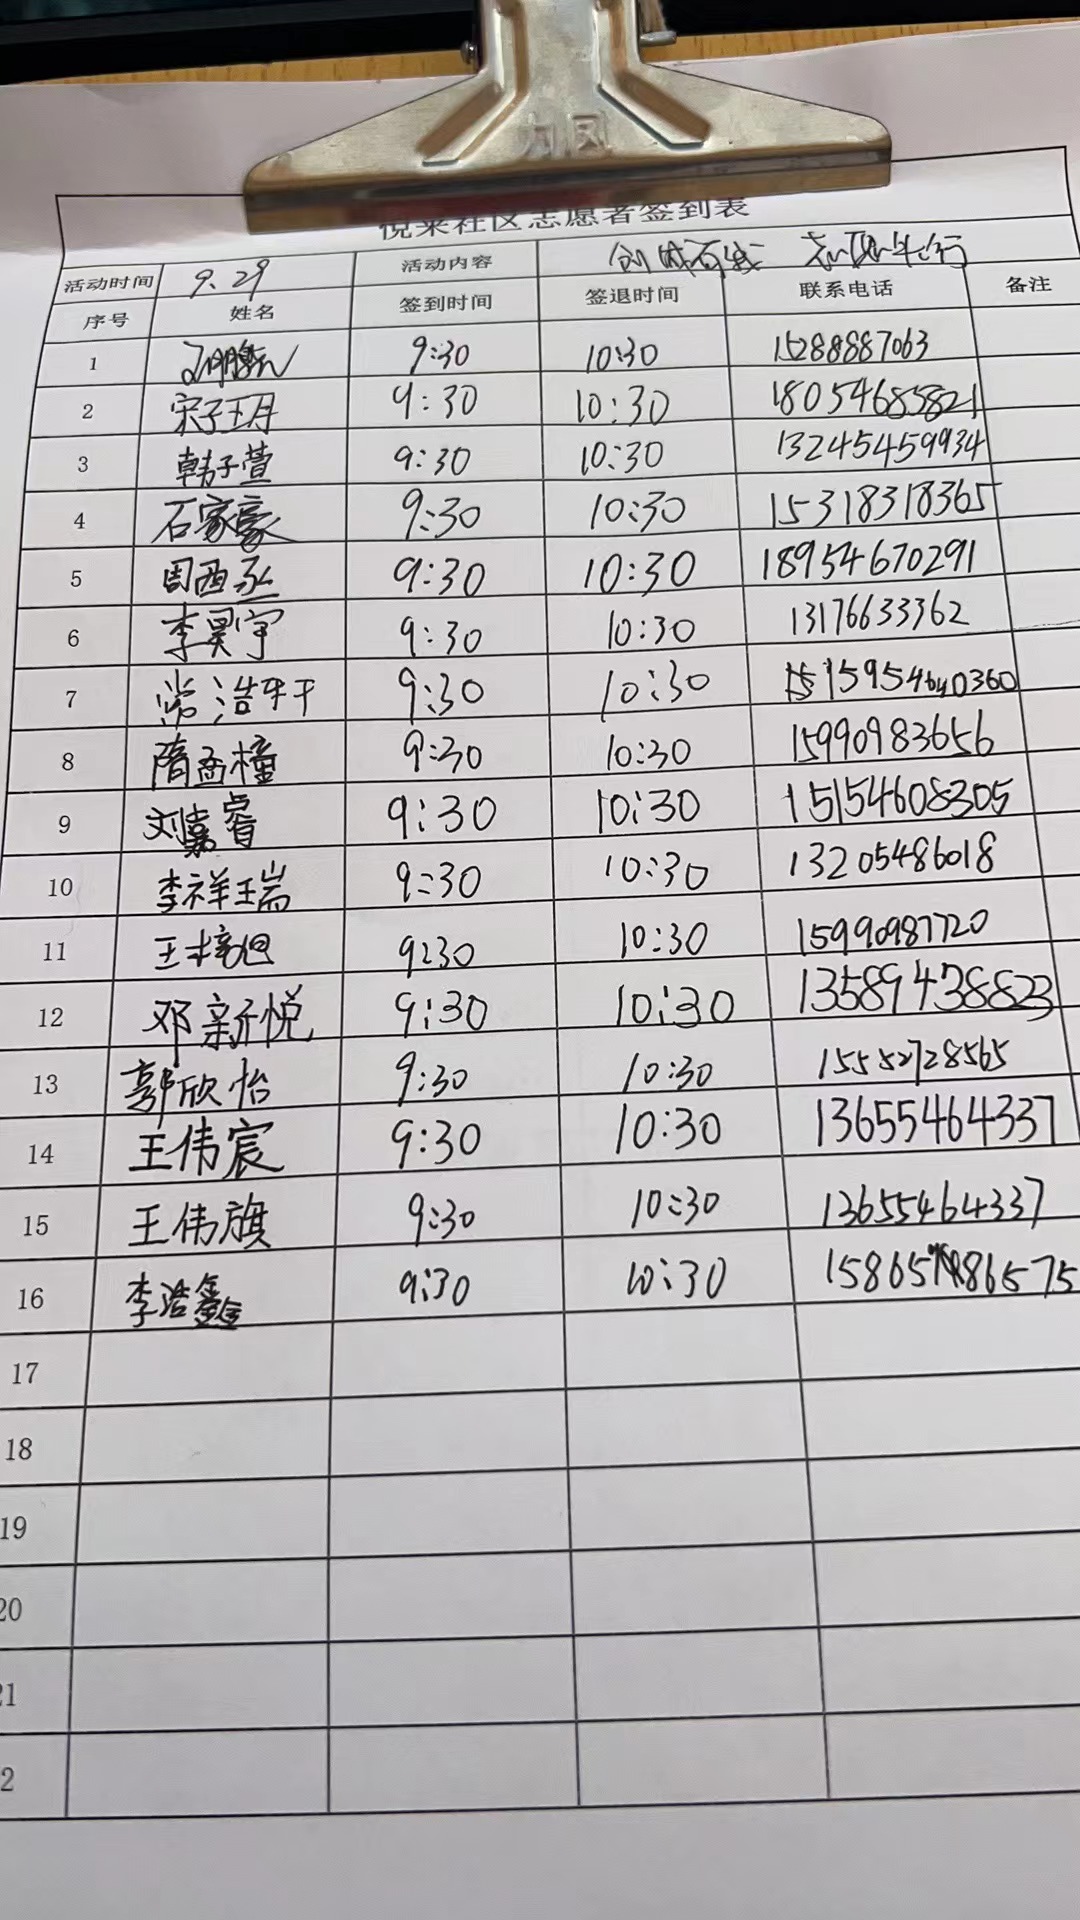 力风
悦来社区志愿者签到表
活动时间 9.29 活动内容 创城有我 志愿先行
序号 姓名 签到时间 签退时间 联系电话 备注
1 9:30 10:30 15288887063
2 宋子玥 9:30 10:30 18054685821
3 韩子萱 9:30 10:30 132454459934
4 石家豪 9:30 10:30 15318318365
5 周西丞 9:30 10:30 18954670291
6 李昊宇 9:30 10:30 13176633362
7 常浩轩 9:30 10:30 15954640360
8 隋孟橦 9:30 10:30 15990983656
9 刘嘉睿 9:30 10:30 15154608305
10 李祥瑞 9:30 10:30 13205486018
11 王梓旭 9:30 10:30 15990987720
12 邓新悦 9:30 10:30 13589438823
13 郭欣怡 9:30 10:30 15552728565
14 王伟宸 9:30 10:30 13655464337
15 王伟旗 9:30 10:30 13655464337
16 李浩鑫 9:30 10:30
17
18
19
20
21
2